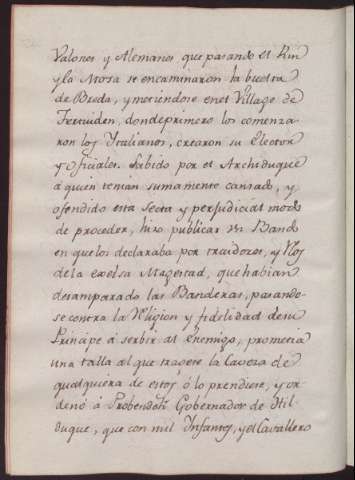 Valones y Alemanes que pasando el Rin
y la Mosa se encaminaron la buelta
de Breda, y metiendose en el Village de
donde primero los comenza-
ron los Ytalianos, crearon su Elector
y oficiales. Sabido por el Archiduque
á quien tenian sumamente cansado, y
ofendido esta Secta y perjudicial modo
de proceder, hizo publicar un Bando
en que los declaraba por traidores, y
de la exelsa Magestad, que habian
desamparado las Banderas, pasando-
se contra la Religion y fidelidad de su
Principe á serbir al Enemigo, prometia
una talla al que trajere la Caveza de
qualquiera de estos, ó lo prendiere, y or-
denó á Gobernador de
duque, que con mil Infantes, y el Cavallero